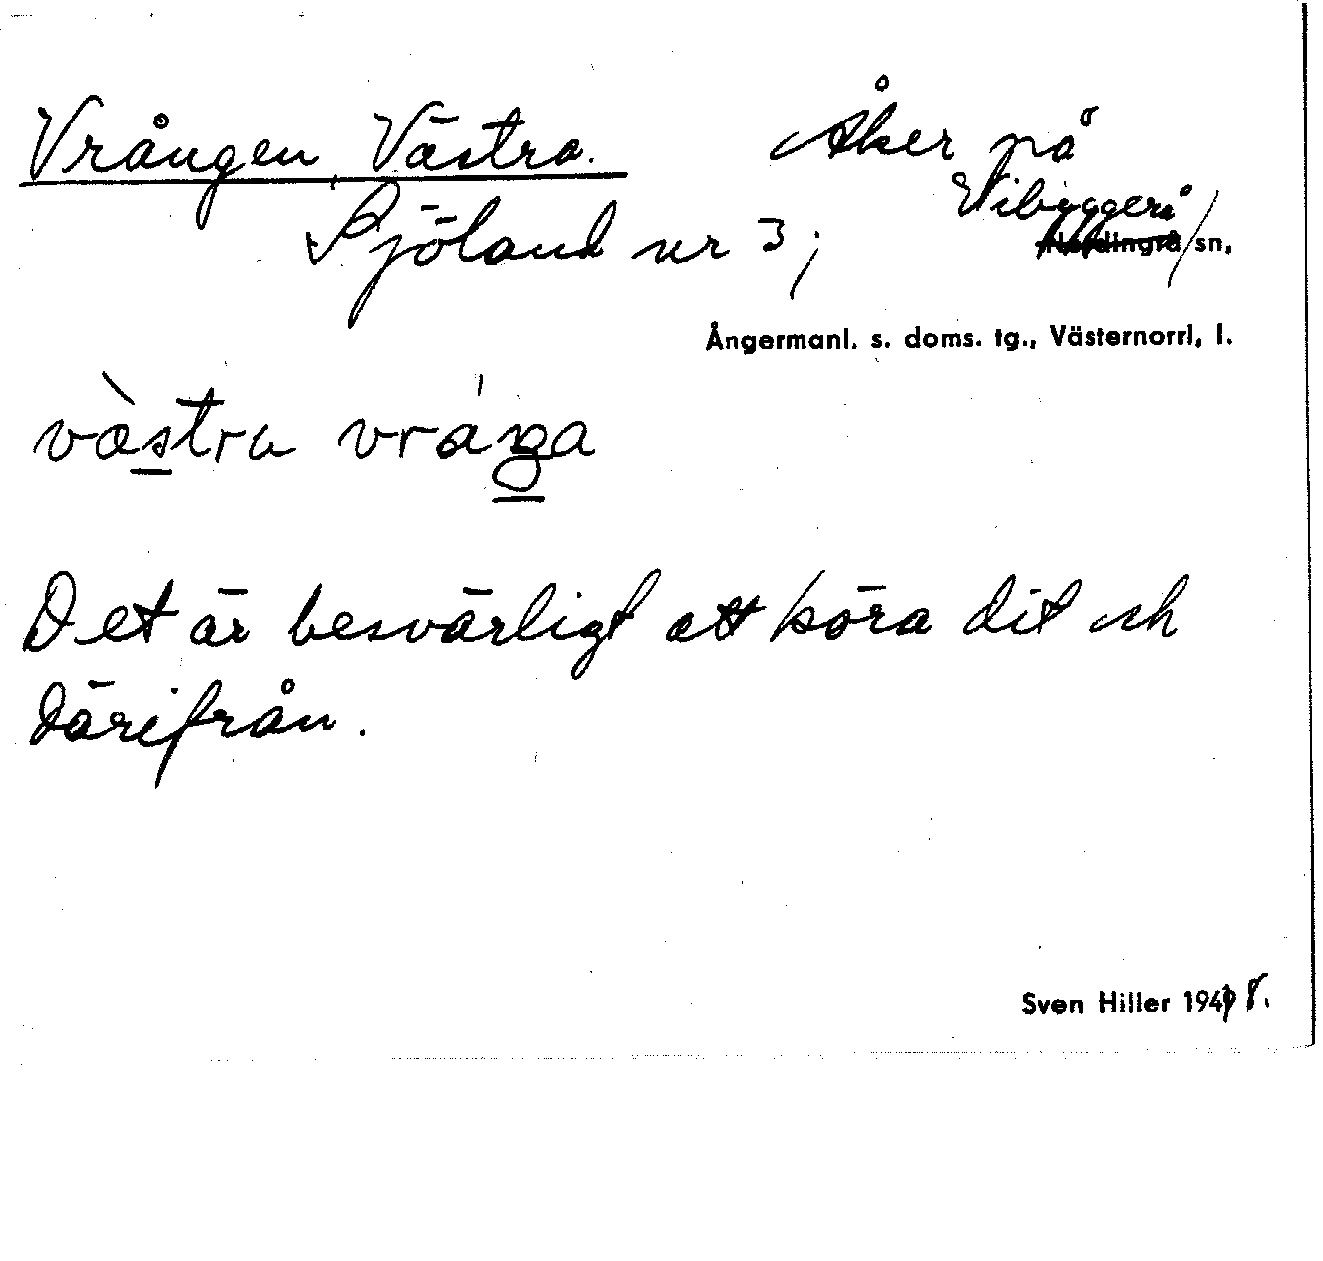 Vrången, Västra. Åker på
Sjöland nr 3; Vibyggerå
Nordingrå sn,
Ångermanl. s. doms. tg., Västernorrl, l.
Det är besvärligt att köra dit och
därifrån.
Sven Hiller 1948.